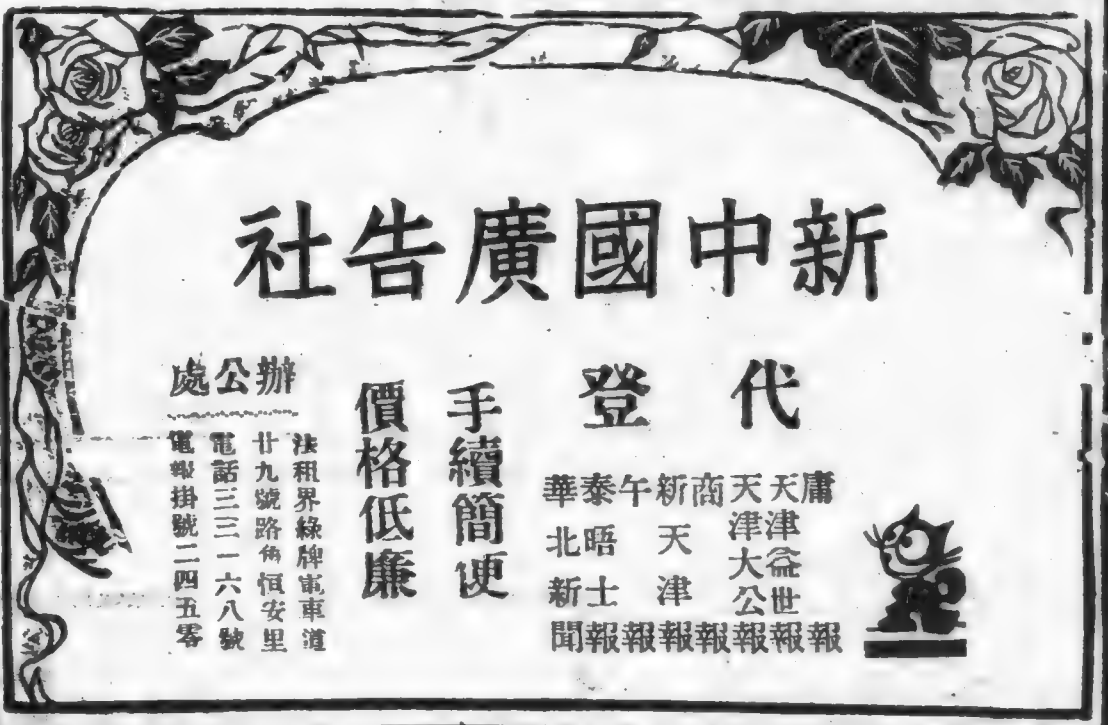 新中國廣告社
代登
庸報
天津益世報
天津大公報
商報
新天津報
午報
泰晤士報
華北新聞
手續簡便
價格低廉
辦公處
法租界綠牌電車道
廿九號路角恒安里
電話三三一六八號
電報掛號二四五零